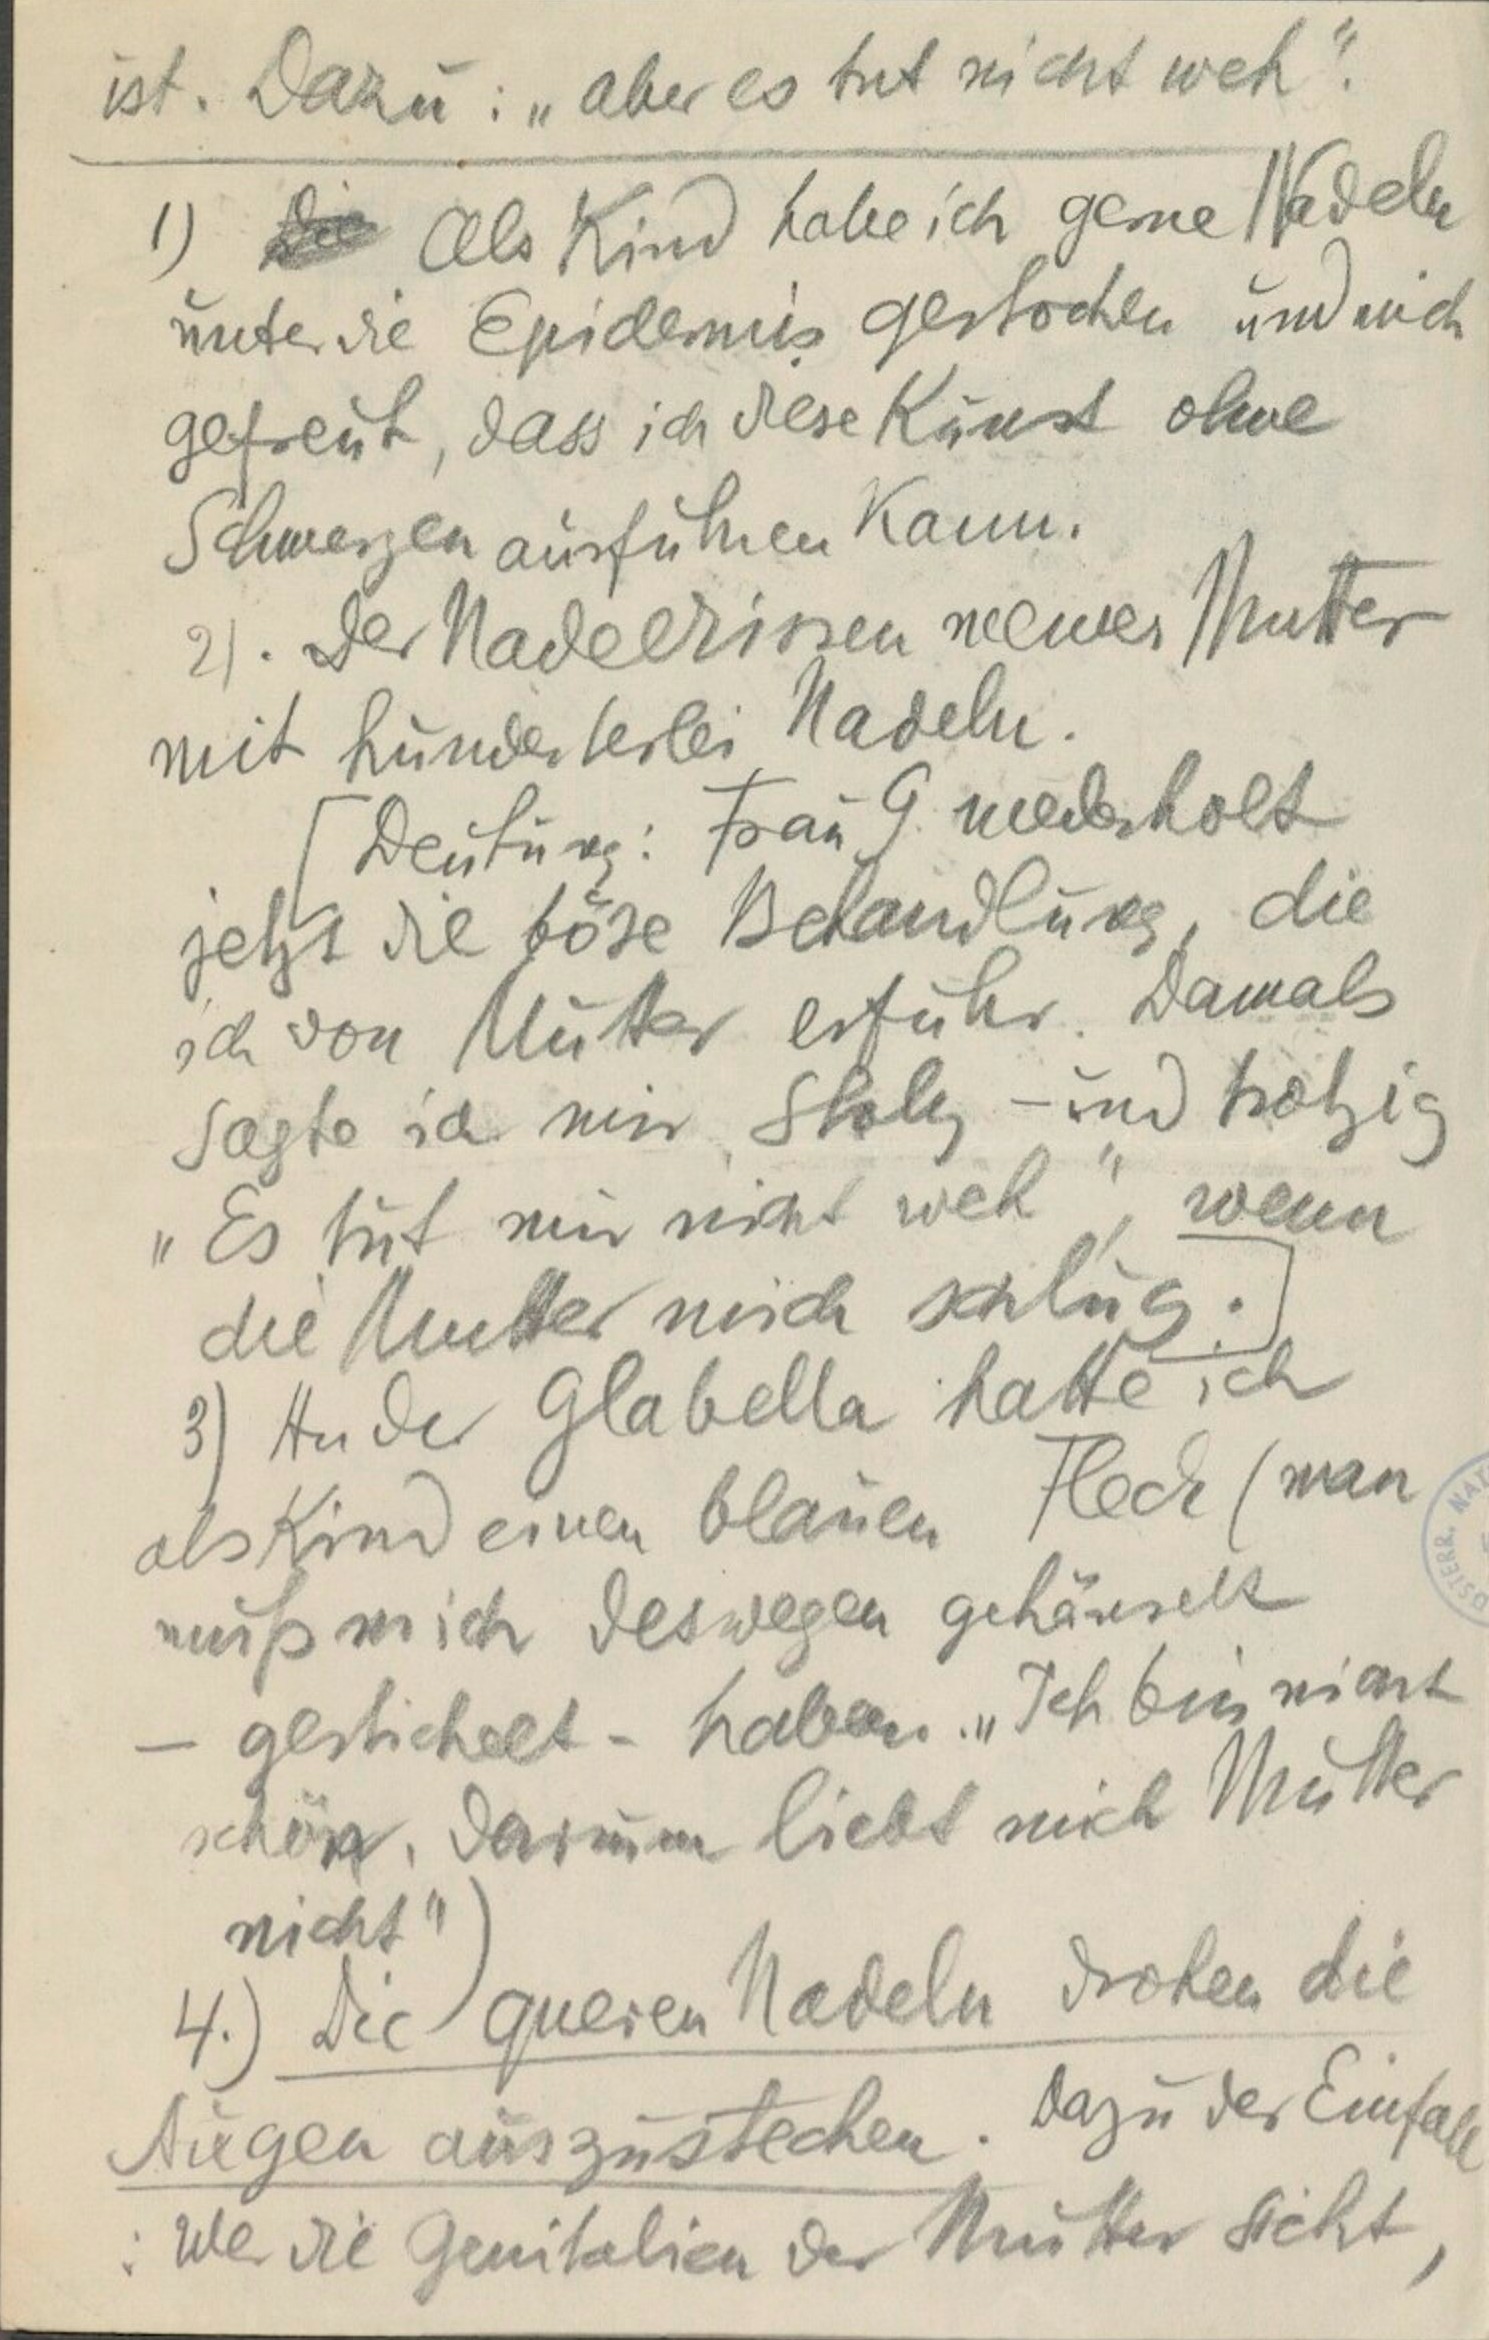 ist. Dazu: „aber es tut nicht weh“.
1) Die Als Kind habe ich gerne Nadeln
unter die Epidermis gestochen und mich
gefreut, dass ich diese Kunst ohne
Schmerzen ausführen kann.
2). Der Nadelkissen meiner Mutter
mit hunderterlei Nadeln.
[Deutung: Frau G. wiederholt
jetzt die böse Behandlung, die
ich von Mutter erfuhr. Damals
sagte ich mir stolz - und trotzig
„Es tut mir nicht weh“, wenn
die Mutter mich schlug.]
3) An der Glabella hatte ich
als Kind einen blauen Fleck (man
muß mich deswegen gehänselt
- gestichelt - haben. „Ich bin nicht
schön. Darum liebt mich Mutter
nicht“)
4.) Die queren Nadeln drohen die
Augen auszustechen. Dazu der Einfall
: Wer die Genitalien der Mutter sieht,
ÖSTERR. NAT